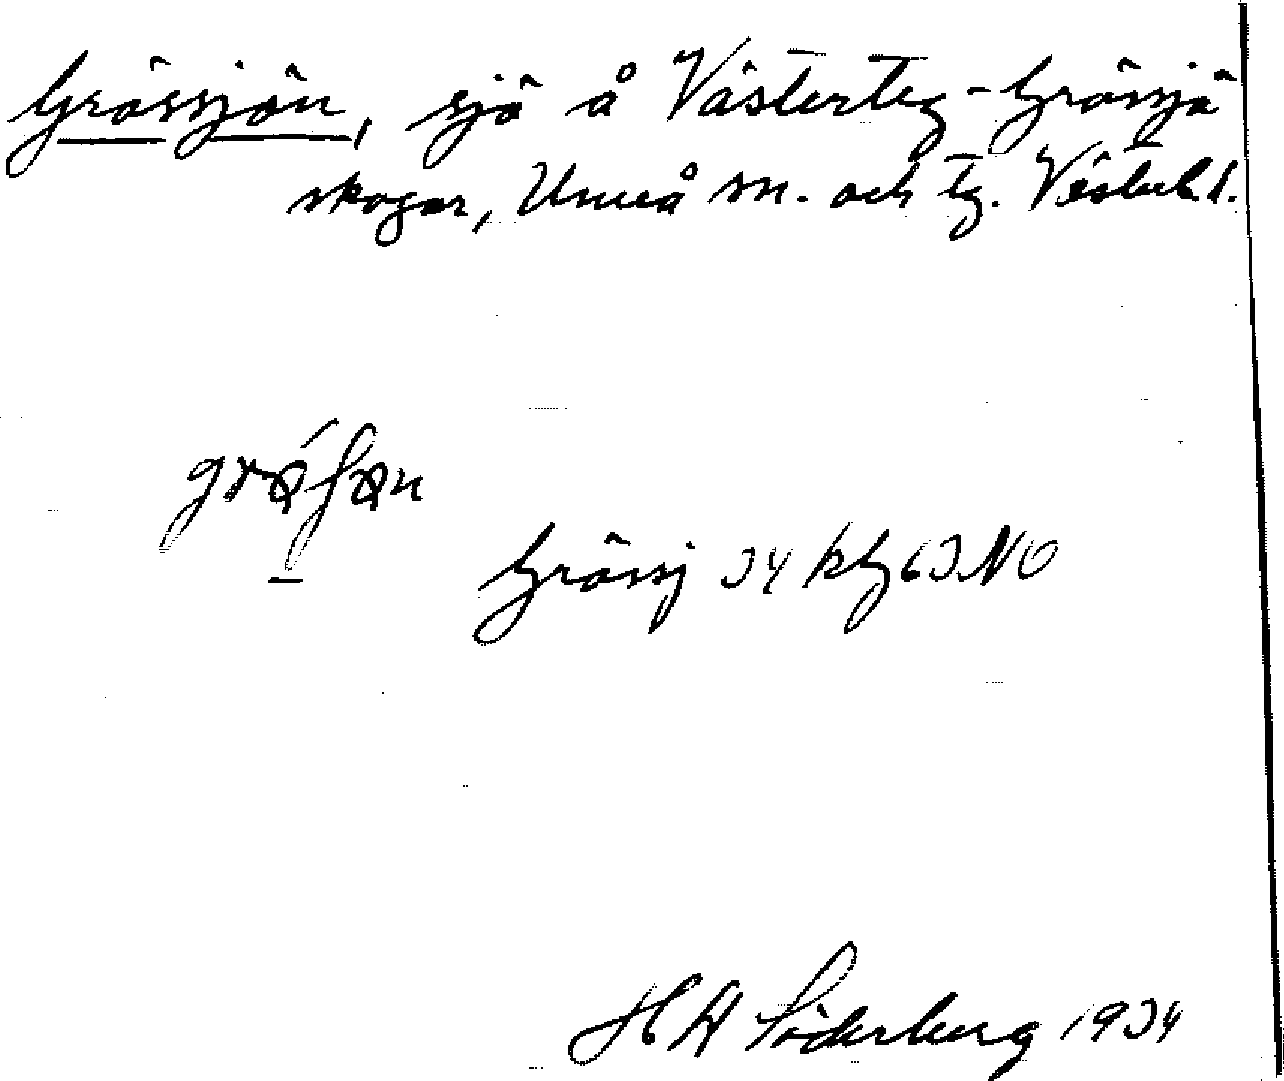 Grössjön, sjö å Västerteg-Grössjö
skogar, Umeå sn. och tg. Västerb. l.
Grössj 34 kbl 63 NO
H A Söderberg 1934